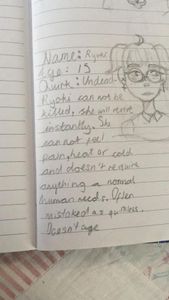 Name: Ryoki
Age: 15
Quirk: Undead
Ryoki can not be
killed, she will revive
instantly. Sh
can not feel
pain, heat or cold
and doesn't require
anything a normal
human needs. Often
mistaked as quirkless.
Doesnt age